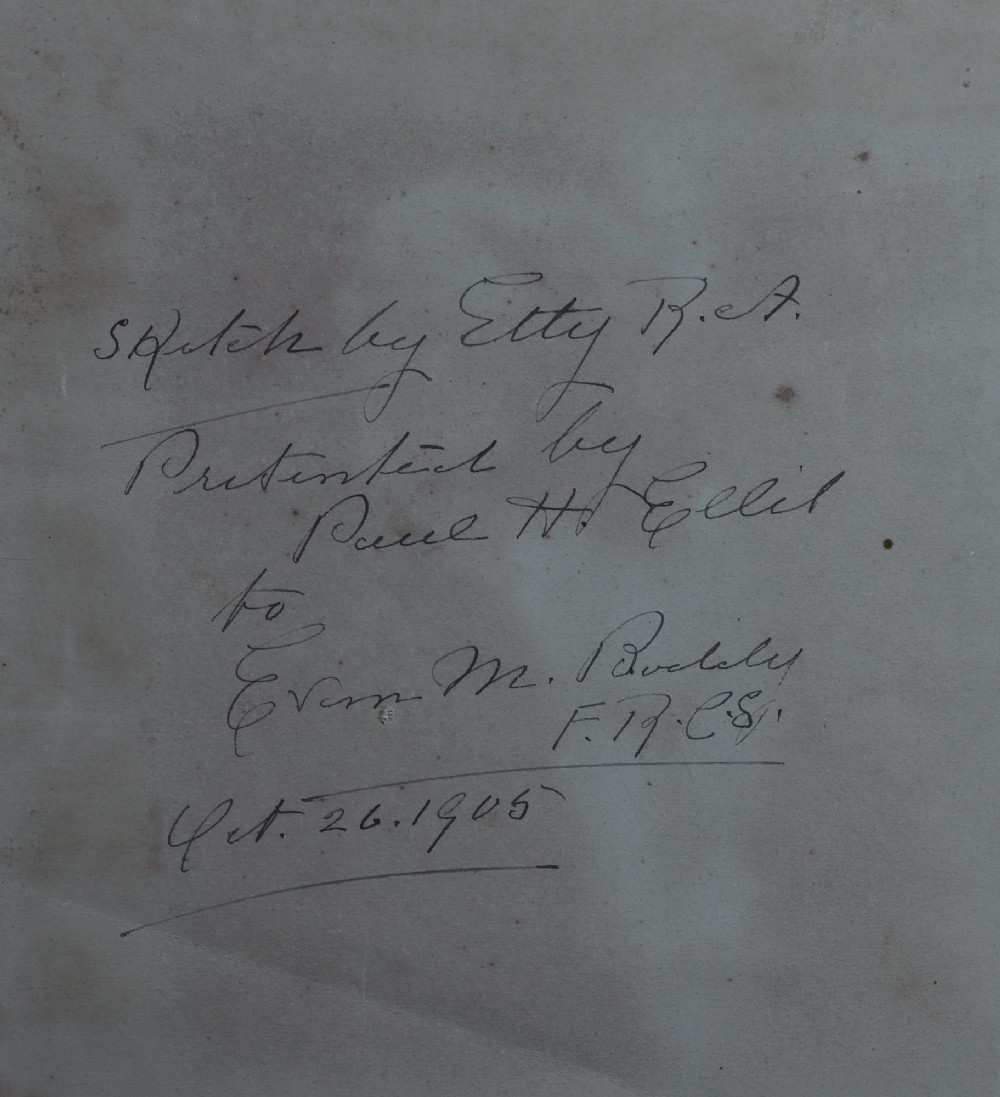 Sketch by Etty R.A.
Presented by
Paul H. Ellis
to
Evan M. Boddy
F.R.C.S.
Oct. 26. 1905